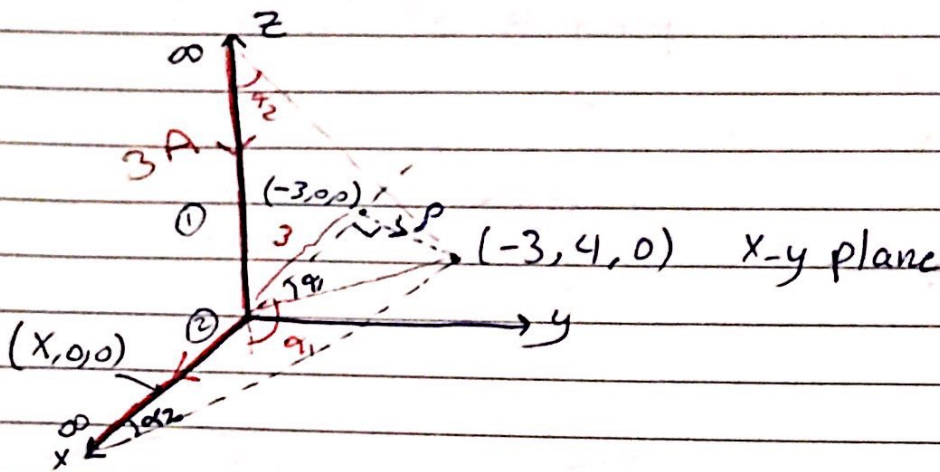 ∞ Z
α₂
3A
(-3,0,0)
①
3
ρ
(-3,4,0) X-y plane
α₁
②
y
α₁
(X,0,0)
∞
α₂
x